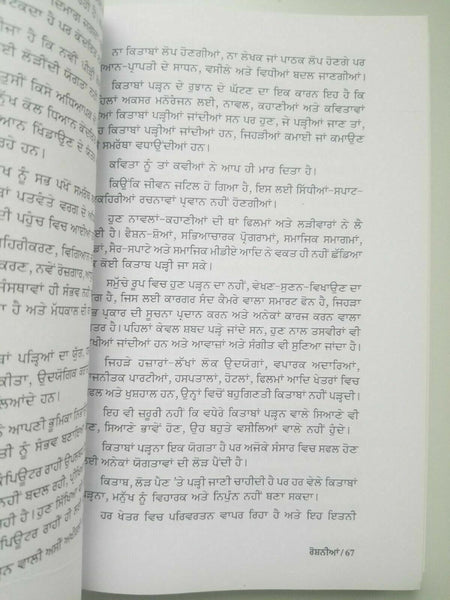 ਦਿਮਾਗ
ਟਕਦਾ ਹੈ ਪਰ
ਜਾ ਹੈ ਕਿ ਨਵੀਂ
ਲੋੜੀਂਦੀ ਯੋਗਤਾ
ਤੁਸੀਂ ਕਿਸੇ
ਕੋਲ ਧਿਆਨ
ਖਿੰਡਾਉਣ ਦੇ
ਰਹੇ ਹਨ।
ਨੂੰ ਸਭ ਪਖੋਂ
ਪਤਵੰਤੇ ਵਰਗ ਦੇ
ਦੀ ਪਹੁੰਚ ਵਿਚ
ਨਵੇਂ ਰੋਜ਼ਗਾਰ,
ਸੰਸਥਾਵਾਂ ਹੀ ਸੰਭਵ
ਹੈ ਅਤੇ ਮੱਧਕਾਲ ਦੀ
ਪੜ੍ਹਿਆਂ ਦਾ ਯੁੱਗ
ਕੀਤਾ, ਉਦਯੋਗਿਕ
ਹਨ।
ਨੇ ਆਪਣੀ ਭੂਮਿਕਾ
ਨੂੰ ਸੰਭਵ
ਰਾਹੀਂ
ਨਹੀਂ ਬਦਲ ਰਹੀ,
ਰਹੀ ਹੈ। ਹੁਣ
ਰਾਹੀਂ ਹੀ
ਵਾਲੀ ਅਸੀਂ
ਨਾ ਕਿਤਾਬਾਂ ਲੋਪ ਹੋਣਗੀਆਂ, ਨਾ ਲੇਖਕ ਜਾਂ ਪਾਠਕ ਲੋਪ ਹੋਣਗੇ ਪਰ
ਆਨ-ਪ੍ਰਾਪਤੀ ਦੇ ਸਾਧਨ, ਵਸੀਲੇ ਅਤੇ ਵਿਧੀਆਂ ਬਦਲ ਜਾਣਗੀਆਂ।
ਕਿਤਾਬਾਂ ਪੜ੍ਹਨ ਦੇ ਰੁਝਾਨ ਦੇ ਘੱਟਣ ਦਾ ਇਕ ਕਾਰਨ ਇਹ ਹੈ ਕਿ
ਹਿਲਾਂ ਅਕਸਰ ਮਨੋਰੰਜਨ ਲਈ, ਨਾਵਲ, ਕਹਾਣੀਆਂ ਅਤੇ ਕਵਿਤਾਵਾਂ
ਕਿਤਾਬਾਂ ਪੜ੍ਹੀਆਂ ਜਾਂਦੀਆਂ ਸਨ ਪਰ ਹੁਣ, ਜੇ ਪੜ੍ਹੀਆਂ ਜਾਣ ਤਾਂ,
ਹ ਕਿਤਾਬਾਂ ਪੜ੍ਹੀਆਂ ਜਾਂਦੀਆਂ ਹਨ, ਜਿਹੜੀਆਂ ਕਮਾਈ ਜਾਂ ਕਮਾਉਣ
ਸਮਰੱਥਾ ਵਧਾਉਂਦੀਆਂ ਹਨ।
ਕਵਿਤਾ ਨੂੰ ਤਾਂ ਕਵੀਆਂ ਨੇ ਆਪ ਹੀ ਮਾਰ ਦਿਤਾ ਹੈ।
ਕਿਉਂਕਿ ਜੀਵਨ ਜਟਿਲ ਹੋ ਗਿਆ ਹੈ, ਇਸ ਲਈ ਸਿੱਧੀਆਂ-ਸਪਾਟ-
ਕਹਿਰੀਆਂ ਰਚਨਾਵਾਂ ਪ੍ਰਵਾਨ ਨਹੀਂ ਹੋਣਗੀਆਂ।
ਹੁਣ ਨਾਵਲਾਂ-ਕਹਾਣੀਆਂ ਦੀ ਥਾਂ ਫਿਲਮਾਂ ਅਤੇ ਲੜੀਵਾਰਾਂ ਨੇ ਲੈ
ਈ ਹੈ। ਫੈਸ਼ਨ-ਸ਼ੋਆਂ, ਸਭਿਆਚਾਰਕ ਪ੍ਰੋਗਰਾਮਾਂ, ਸਮਾਜਿਕ ਸਮਾਗਮਾਂ,
ਡਾਂ, ਸੈਰ-ਸਪਾਟੇ ਅਤੇ ਸਮਾਜਿਕ ਮੀਡੀਏ ਆਦਿ ਨੇ ਵਕਤ ਹੀ ਨਹੀਂ ਛੱਡਿਆ
ਕੋਈ ਕਿਤਾਬ ਪੜ੍ਹੀ ਜਾ ਸਕੇ।
ਸਮੁੱਚੇ ਰੂਪ ਵਿਚ ਹੁਣ ਪੜ੍ਹਨ ਦਾ ਨਹੀਂ, ਵੇਖਣ-ਸੁਣਨ-ਵਿਖਾਉਣ ਦਾ
ਗ ਹੈ, ਜਿਸ ਲਈ ਕਾਰਗਰ ਸੰਦ ਕੈਮਰੇ ਵਾਲਾ ਸਮਾਰਟ ਫੋਨ ਹੈ, ਜਿਹੜਾ
ਪ੍ਰਕਾਰ ਦੀ ਸੂਚਨਾ ਪ੍ਰਦਾਨ ਕਰਨ ਅਤੇ ਅਨੇਕਾਂ ਕਾਰਜ ਕਰਨ ਵਾਲਾ
ਤਰ ਹੈ। ਪਹਿਲਾਂ ਕੇਵਲ ਸ਼ਬਦ ਪੜ੍ਹੇ ਜਾਂਦੇ ਸਨ, ਹੁਣ ਨਾਲ ਤਸਵੀਰਾਂ ਵੀ
ਖੀਆਂ ਜਾਂਦੀਆਂ ਹਨ ਅਤੇ ਆਵਾਜ਼ਾਂ ਅਤੇ ਸੰਗੀਤ ਵੀ ਸੁਣਿਆ ਜਾਂਦਾ ਹੈ।
ਜਿਹੜੇ ਹਜ਼ਾਰਾਂ-ਲੱਖਾਂ ਲੋਕ ਉਦਯੋਗਾਂ, ਵਪਾਰਕ ਅਦਾਰਿਆਂ,
ਜਨੀਤਕ ਪਾਰਟੀਆਂ, ਹਸਪਤਾਲਾਂ, ਹੋਟਲਾਂ, ਫਿਲਮਾਂ ਆਦਿ ਖੇਤਰਾਂ ਵਿਚ
ਫਲ ਅਤੇ ਖੁਸ਼ਹਾਲ ਹਨ, ਉਨ੍ਹਾਂ ਵਿਚੋਂ ਬਹੁਗਿਣਤੀ ਕਿਤਾਬਾਂ ਨਹੀਂ ਪੜ੍ਹਦੀ।
ਇਹ ਵੀ ਜ਼ਰੂਰੀ ਨਹੀਂ ਕਿ ਵਧੇਰੇ ਕਿਤਾਬਾਂ ਪੜ੍ਹਨ ਵਾਲੇ ਸਿਆਣੇ ਵੀ
ਣ, ਸਿਆਣੇ ਭਾਵੇਂ ਹੋਣ, ਉਹ ਬਹੁਤੇ ਵਸੀਲਿਆਂ ਵਾਲੇ ਨਹੀਂ ਹੁੰਦੇ।
ਕਿਤਾਬਾਂ ਪੜ੍ਹਨਾ ਇਕ ਯੋਗਤਾ ਹੈ ਪਰ ਅਜੋਕੇ ਸੰਸਾਰ ਵਿਚ ਸਫਲ ਹੋਣ
ਲਈ ਅਨੇਕਾਂ ਯੋਗਤਾਵਾਂ ਦੀ ਲੋੜ ਪੈਂਦੀ ਹੈ।
ਕਿਤਾਬ, ਲੋੜ ਪੈਣ 'ਤੇ ਪੜ੍ਹੀ ਜਾਣੀ ਚਾਹੀਦੀ ਹੈ ਪਰ ਹਰ ਵੇਲੇ ਕਿਤਾਬਾਂ
ੜ੍ਹਨਾ, ਮਨੁੱਖ ਨੂੰ ਵਿਹਾਰਕ ਅਤੇ ਨਿਪੁੰਨ ਨਹੀਂ ਬਣਾ ਸਕਦਾ।
ਹਰ ਖੇਤਰ ਵਿਚ ਪਰਿਵਰਤਨ ਵਾਪਰ ਰਿਹਾ ਹੈ ਅਤੇ ਇਹ ਇਤਨੀ
ਰੋਸ਼ਨੀਆਂ/67